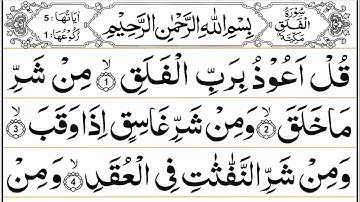 سُوْرَةُ الْفَلَقِ مَكِّيَّةٌ
بِسْمِ اللّٰهِ الرَّحْمٰنِ الرَّحِيْمِ
اٰيَاتُهَا: 5
رُكُوْعُهَا: 1
قُلْ اَعُوْذُ بِرَبِّ الْفَلَقِ ۙ﴿1﴾ مِنْ شَرِّ
مَا خَلَقَ ۙ﴿2﴾ وَمِنْ شَرِّ غَاسِقٍ اِذَا وَقَبَ ۙ﴿3﴾
وَمِنْ شَرِّ النَّفّٰثٰتِ فِى الْعُقَدِ ۙ﴿4﴾ وَمِنْ